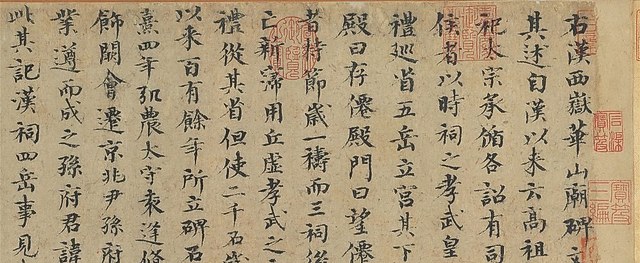 右漢西嶽華山廟碑文
其述自漢以來云高祖
祀太宗承循各詔有司
侯者以時祠之孝武皇
禮巡省五岳立宮其下
殿曰存僊殿門曰望僊
者持節歲一禱而三祠後
亡新寖用丘虛孝武之
禮從其省但使二千石歲
以來百有餘年所立碑石
熹四年弘農太守袁逢修
飾闕會遷京兆尹孫府
業遵而成之孫府君諱
此其記漢祠四岳事見